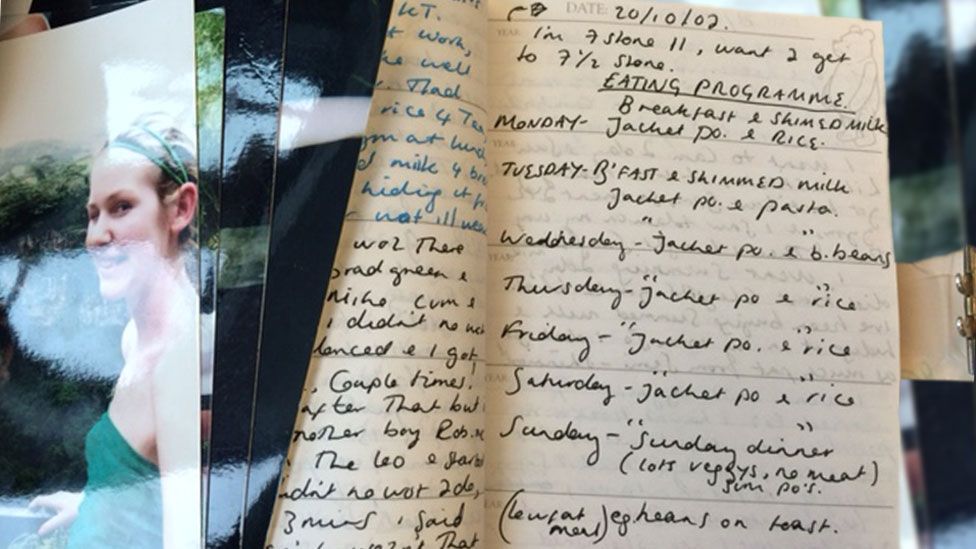 KT.
t work,
he well
. Thad
rice 4 Tea,
gm at lunch
d milk 4 br
hiding it f
- not ill we
woz There
brad green e
nishe cum e
i didn't no w
lanced e I got
Couple times.
after That but
nother boy Rob.
The leo e
didn't no wot 2 do,
3 mins i said
That
DATE: 20/10/02.
YEAR
I'm 7 stone 11, want 2 get
to 7 1/2 stone.
EATING PROGRAMME.
Breakfast e SKIMED MILK
MONDAY- Jacket po. e RICE.
TUESDAY- B'FAST e SKIMMED MILK
Jacket po. e pasta.
"
Wednesday - Jacket po. e b. beans
" "
Thursday - Jacket po e rice
" "
Friday - Jacket po. e rice
" "
Saturday - Jacket po e rice
" "
Sunday - Sunday dinner
(lots veggys, no meat)
sum po's.
(lowfat) eg beans on toast.
meal